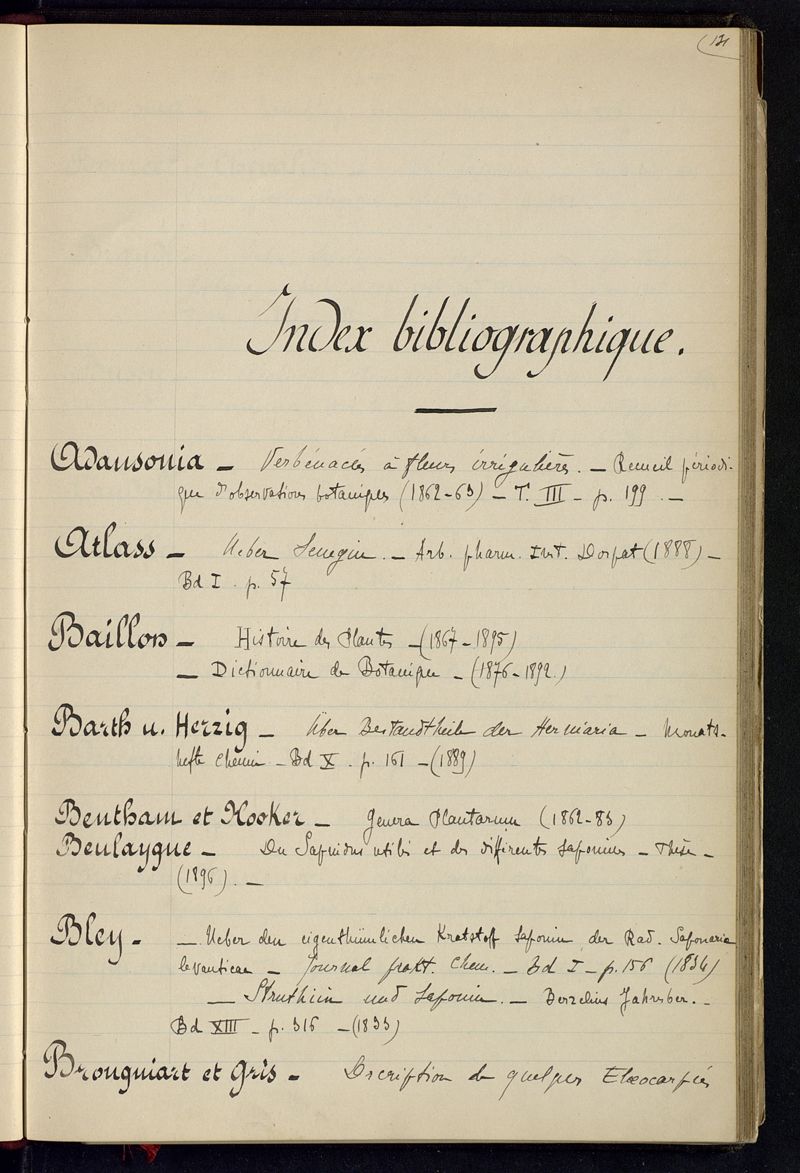 131
Index bibliographique.
Adansonia — Verbénacées à fleurs irrégulières. — Recueil périodi-
que d'observations botaniques (1862-63) — T. III — p. 199. —
Atlass — Ueber Senegin. — Arb. pharm. Inst. Dorpat (1888) —
Bd I. p. 57
Baillon — Histoire des Plantes — (1867-1895)
— Dictionnaire de Botanique — (1876-1892.)
Barth u. Herzig — Über Bestandtheile der Herniaria — Monats-
hefte Chemie — Bd X. p. 161 — (1889)
Bentham et Hooker — Genera Plantarum (1862-83)
Beulaygue — Du Sapindus utilis et des différentes saponines — Thèse —
(1896). —
Bley — — Ueber den eigenthümlichen Kratstoff saponin der Rad. Saponaria
levanticae — Journal prakt. Chem. — Bd I — p. 156 (1834)
— Struthiin und Saponin. — Berzelius Jahresber. —
Bd XIII — p. 316 — (1833)
Brongniart et Gris — Description de quelques Elæocarpées